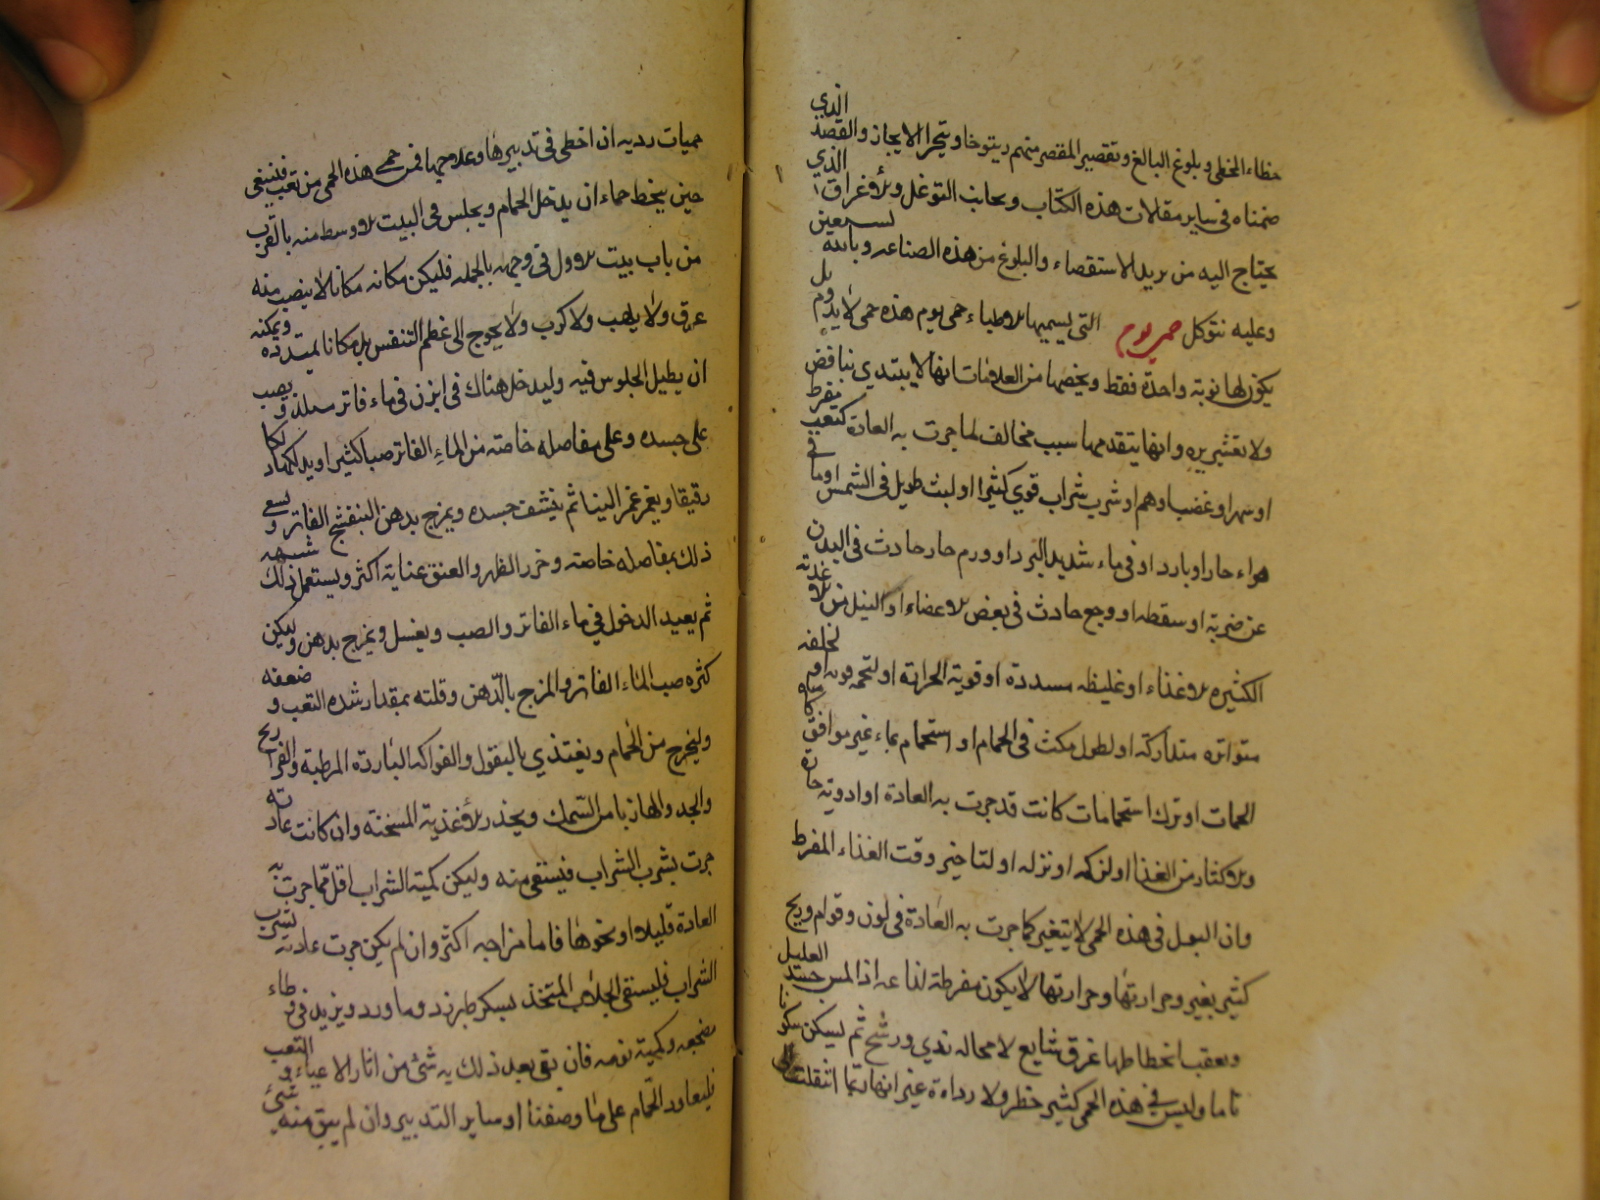 خطاء المخطى وبلوغ البالغ وتقصير المقصر منهم ويتوخا ويتحرا الايجاز والقصد الذي
ضمناه في ساير مقلات هذه الكتاب ويجانب التوغل والاغراق الذي
يحتاج اليه من يريد الاستقصاء والبلوغ من هذه الصناعه وبالله نستعين
وعليه نتوكل حمى يوم التى يسميها الاطباء حمى يوم هذه حمى لا يدوم بل
يكون لها نوبة واحدة فقط ويخصها من العلامات انها لا يبتدي بنافض
ولا تقشعريره وانها يتقدمها سبب مخالف لما جرت به العادة كتعب مفرط
او سهر او غضب او هم او شرب شراب قوي كثيرا او لبث طويل في الشمس او ما في
هواء حار او بارد او في ماء شديد البرد او ورم حار حادث في البدن
عن ضربة او سقطه او وجع حادث في بعض الاعضاء او النيل من الاغذية
الكثيره الاغذاء او غليظه مسددة او قوية الحرارة او لتخمه قويه او لخلفه
متواتره متداركه او لطول مكث في الحمام او استحمام بماء غير موافق كمياه
الحمات او ترك استحمامات كانت قد جرت به العادة او ادوية حارة
والاكثار من الغذا او لتركه او نزله او لتاخير وقت الغذاء المفرط
وان البول في هذه الحمى لا يتغير كما جرت به العادة في لون وقوام وريح
كثير بغير وحرارتها وحرارتها لا يكون مفرطة لذاعه اذا لمس جسد العليل
ويعقب انحطاطها عرق شايع لا محاله ندي ورشح ثم يسكن سكونا
تاما وليس في هذه الحمى كثير خطر ولا رداءة غير انها ربما انتقلت الى
حميات رديه ان اخطى في تدبيرها وعلاجها فمن حم هذه الحمى من تعب فينبغى
حين ينحط حماه ان يدخل الحمام ويجلس في البيت الاوسط منه بالقرب
من باب بيت الاول في وجهه بالجمله فليكن مكانه مكانا لا ينصب منه
عرق ولا يلهب ولا كرب ولا يحوج الى عظم التنفس بل مكانا يستدده ويمكنه
ان يطيل الجلوس فيه وليدخل هناك في ابزن في ماء فاتر ويصب
على جسده وعلى مفاصله خاصته من الماء الفاتر صبا كثيرا ويدلك دلكا
رقيقا ويغمز غمز الينا ثم ينشف جسده ويمزج بدهن البنفشج الفاتر ويسعى
ذلك بمفاصله خاصته وخرز الظهر والعنق عناية اكثر ويستعمل ذلك شبيه
ثم يعيد الدخول في ماء الفاتر والصب ويغسل ويمزج بدهن وليكن
كثره صب الماء الفاتر والمزج بالدهن وقلته بمقدار شده التعب وضعفه
وليخرج من الحمام ويغتذي بالبقول والفواكه الباردة المرطبة والفراريج
والجدا والهازبا من السمك ويحذر الاغذية المسخنه وان كانت عادته
جرت بشرب الشراب فيستقى منه وليكن كمية الشراب اقل مما جرت به
العادة قليلا او نحوها فاما مزاجه اكثر وان لم يكن جرت عادته بشرب
الشراب فليستقى الجلاب المتخذ بسكر طبرزد وماورد ويزيد في وطاء
مضجعه وكمية نومه فان بقى بعد ذلك به شئ من اثار الاعياء والتعب
فليعاود الحمام على ما وصفنا او ساير التدبير وان لم يبق منه شئ